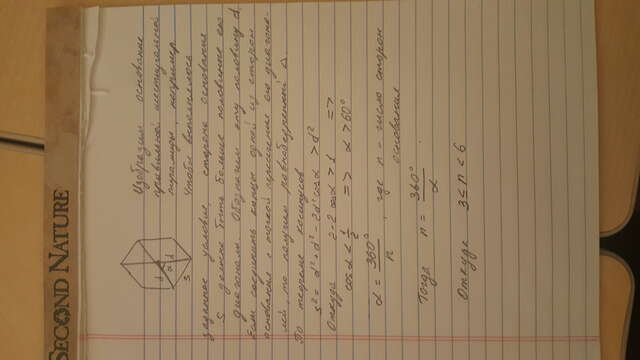 SECOND NATURE
Изобразим основание
правильной шестиугольной
пирамиды, например.
Чтобы выполнялось
заданное условие, сторона основания
S должна быть больше половины его
диагонали. Обозначим эту половину d.
Если соединить концы одной из сторон
основания с точкой пересечения его диагона-
лей, то получим равнобедренный Δ
d
α
d
s
По теореме косинусов
s² = d² + d² - 2d² cos α > d²
Откуда 2-2 cos α > 1 =>
cos α < 1/2 => α > 60°
α = 360°/n , где n - число сторон
основания
Тогда n = 360°/α .
Откуда 3 ≤ n < 6